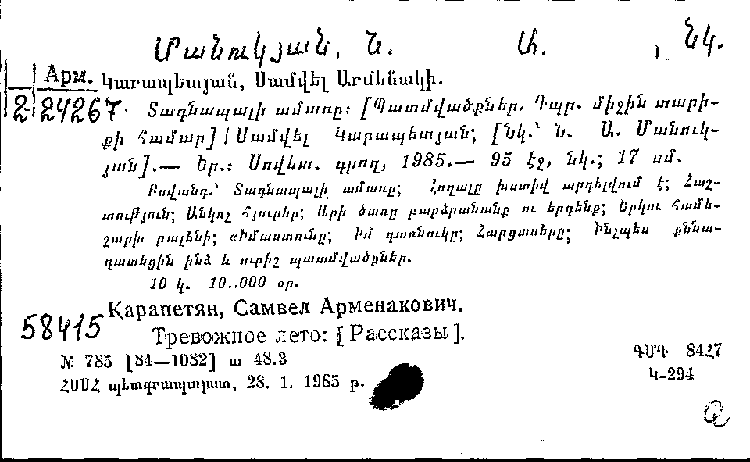 Մանուկյան, Ն. Ա., նկ.
Арм. Կարապետյան, Սամվել Արմենակի.
2-24267 Տագնապալի ամառը: [Պատմվածքներ. Դպր. միջին տարի-
քի համար] / Սամվել Կարապետյան; [նկ.՝ Ն. Ա. Մանուկ-
յան].— Եր.: Սովետ. գրող, 1985.— 95 էջ, նկ.; 17 սմ.
Բովանդ.՝ Տագնապալի ամառը; Հողալը խստիվ արգելվում է; Հաշ-
տություն; Անկոչ հյուրեր; Արի ծառը բարձրանանք ու երգենք; Երկու համե-
ղարի բալենի; Իմաստունը; Իմ գառնուկը; Հարցասերը; Ինչպես քննա-
դատեցին ինձ և ուրիշ պատմվածքներ.
10 կ. 10.000 օր.
58415 Карапетян, Самвел Арменакович.
Тревожное лето: [Рассказы].
№ 785 [84—1082] ա 48.3 ԳՄԴ 8427
ՀՍՍՀ պետգրապալատ, 28. 1. 1985 թ. Կ-294